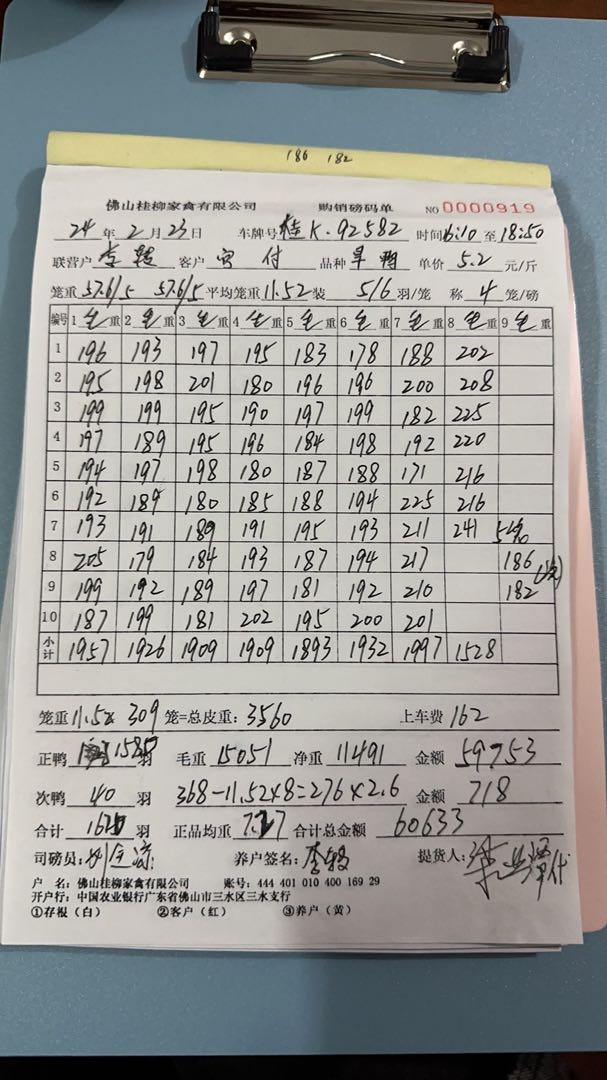 186 182
佛山桂柳家禽有限公司 购销磅码单 NO 0000919
24 年 2 月 23 日 车牌号 桂K·92582 时间 16:10 至 18:50
联营户 李 客户 付 品种 旱鸭 单价 5.2 元/斤
笼重 57.6/5 57.6/5 平均笼重 11.52 装 5/6 羽/笼 称 4 笼/磅
编号 1 毛重 2 毛重 3 毛重 4 毛重 5 毛重 6 毛重 7 毛重 8 毛重 9 毛重
1 196 193 197 195 183 178 188 202
2 195 198 201 180 196 196 200 208
3 199 199 195 190 197 199 182 225
4 197 189 195 196 184 198 192 220
5 194 197 198 180 187 188 171 216
6 192 189 180 185 188 194 225 216
7 193 191 189 191 195 193 211 241
8 205 179 184 193 187 194 217 186
9 199 192 189 197 181 192 210 182
10 187 199 181 202 195 200 201
小计 1957 1926 1909 1909 1893 1932 1997 1528
笼重 11.52 309 笼=总皮重: 3560 上车费 162
正鸭 1580 羽 毛重 15051 净重 11491 金额 59753
次鸭 40 羽 368-11.52×8=276×2.6 金额 718
合计 1620 羽 正品均重 7.27 合计总金额 60633
司磅员: 养户签名: 李 提货人:
户 名: 佛山桂柳家禽有限公司 账号: 444 401 010 400 169 29
开户行: 中国农业银行广东省佛山市三水区三水支行
①存根(白) ②客户(红) ③养户(黄)